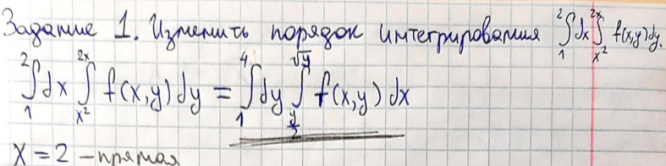 Задание 1. Изменить порядок интегрирования ∫₁² dx ∫_{x²}^{2x} f(x,y)dy.
∫₁² dx ∫_{x²}^{2x} f(x,y) dy = ∫₁⁴ dy ∫_{y/2}^{√y} f(x,y) dx
x = 2 – прямая